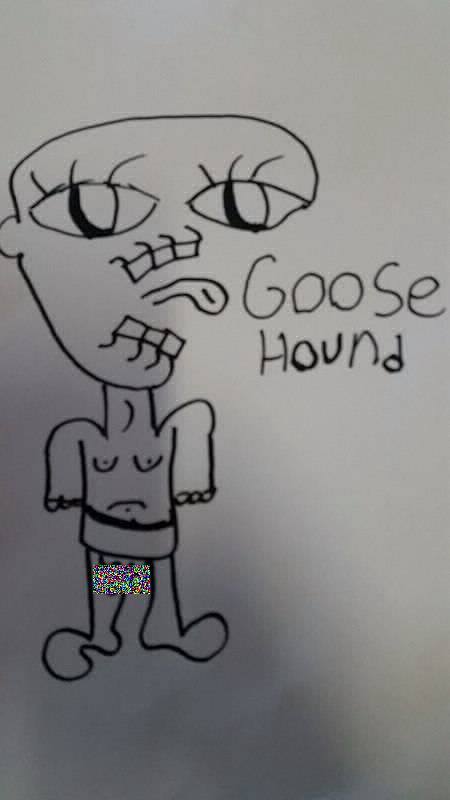 Goose
Hound